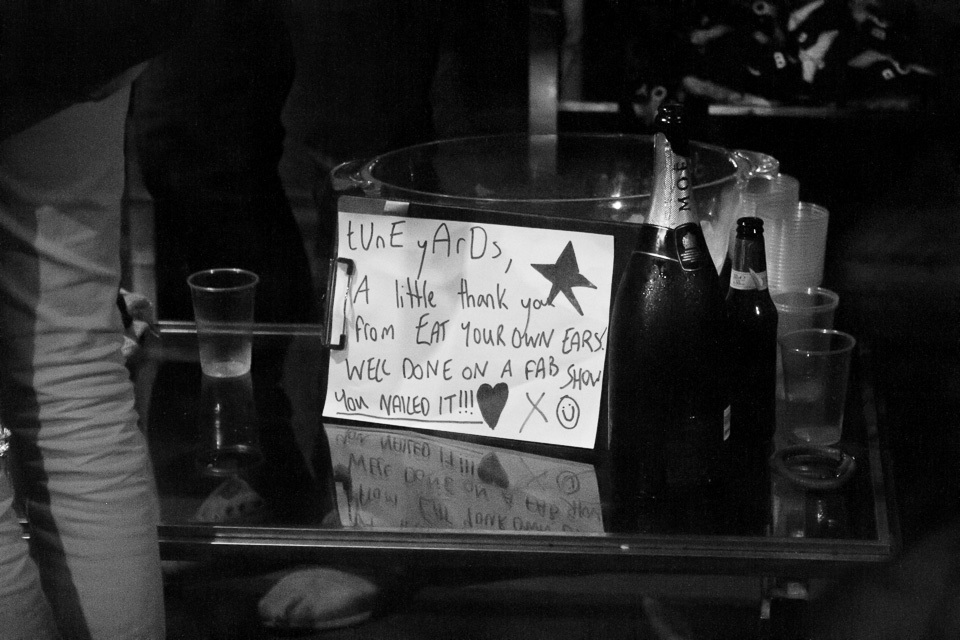 tUnE yArDs,
A little thank you
from EAT YOUR OWN EARS.
WELL DONE ON A FAB SHOW
YOU NAILED IT!!! X
MOË